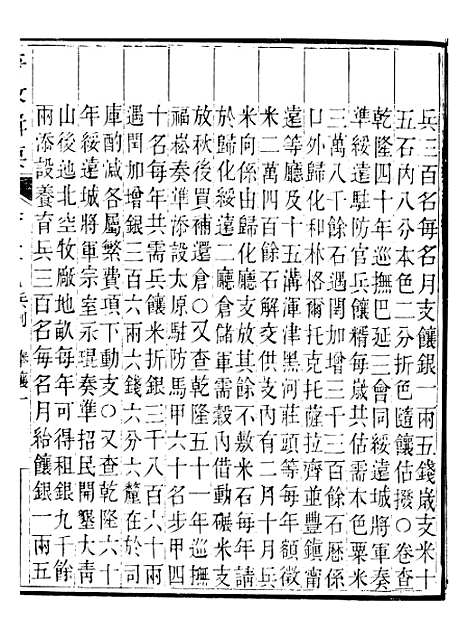 兵三百名每名月支饟銀一兩五錢歲支米十
五石內八分本色二分折色隨饟估撥○卷查
乾隆四十年巡撫巴延三會同綏遠城將軍奏
準綏遠駐防官兵饟糈每歲共估需本色粟米
三萬八千餘石遇閏加增三千三百餘石曆係
口外歸化和林格爾托克托薩拉齊並豐鎭甯
遠等廳及十五溝渾津黑河莊頭等每年額徵
米二萬四百餘石解交供支內有二月十月兵
米向係由歸化廳支放其餘不敷米石每年請
於歸化綏遠二廳倉儲軍需穀內借動碾米支
放秋後買補還倉○又查乾隆五十一年巡撫
福崧奏準添設太原駐防馬甲六十名步甲四
十名每年共需兵饟米折銀三千八百六十兩
遇閏加增銀三百六兩六錢六分六釐在於司
庫酌減各屬繁費項下動支○又查乾隆六十
年綏遠城將軍宗室永琨奏準招民開墾大靑
山後迆北空牧厰地畝每年可得租銀九千餘
兩添設養育兵三百名每名月給饟銀一兩五